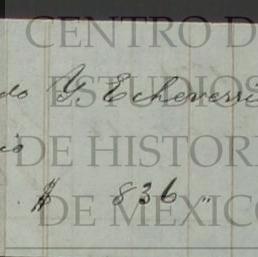 CENTRO D
do Y. Echeverri
ESTUDIOS
DE HISTOR
$ 836 "
DE MEXICO